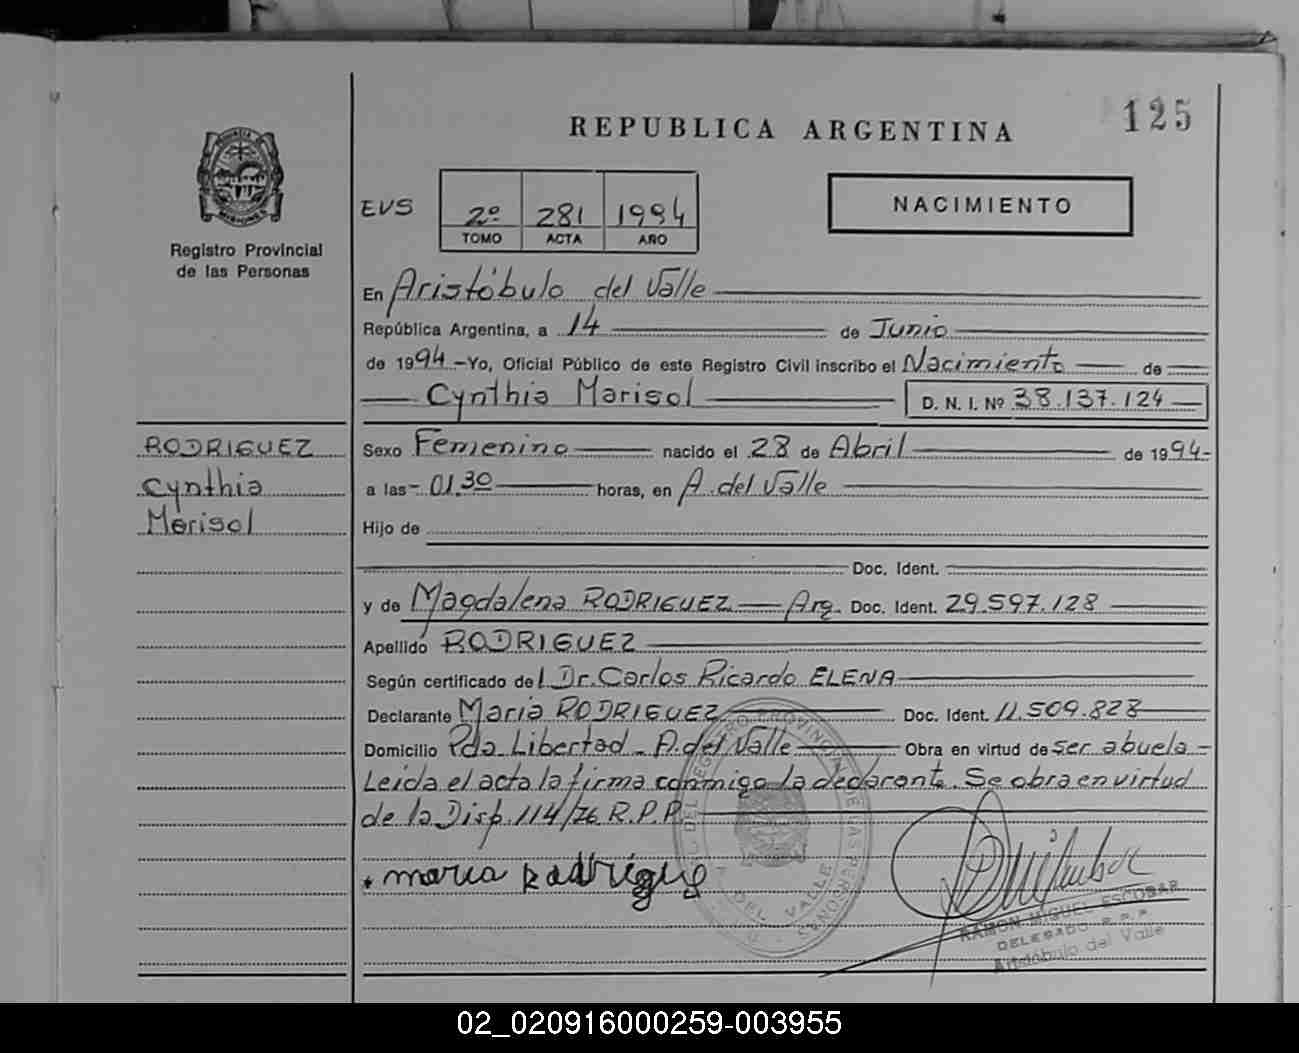 125
REPUBLICA ARGENTINA
PROVINCIA DE
MISIONES
Registro Provincial
de las Personas
EVS
2º 281 1994
TOMO ACTA AÑO
NACIMIENTO
En Aristóbulo del Valle
República Argentina, a 14 de Junio
de 1994 - Yo, Oficial Público de este Registro Civil inscribo el Nacimiento de
Cynthia Marisol D. N. I. Nº 38.137.124
RODRIGUEZ
Cynthia
Marisol
Sexo Femenino nacido el 28 de Abril de 1994-
a las - 01.30 horas, en A. del Valle
Hijo de
Doc. Ident.
y de Magdalena RODRIGUEZ Arg. Doc. Ident. 29.597.128
Apellido RODRIGUEZ
Según certificado del Dr. Carlos Ricardo ELENA
Declarante Maria RODRIGUEZ Doc. Ident. 11.509.828
Domicilio Pda Libertad - A. del Valle Obra en virtud de ser abuela -
Leida el acta la firma conmigo la declarante. Se obra en virtud
de la Disp. 114/76 R.P.P.
maria Rodrigues
REGISTRO PROVINCIAL DE LAS PERSONAS
DEL VALLE
RAMON MIGUEL ESCOBAR
DELEGADO R.P.P.
Aristóbulo del Valle
02_020916000259-003955